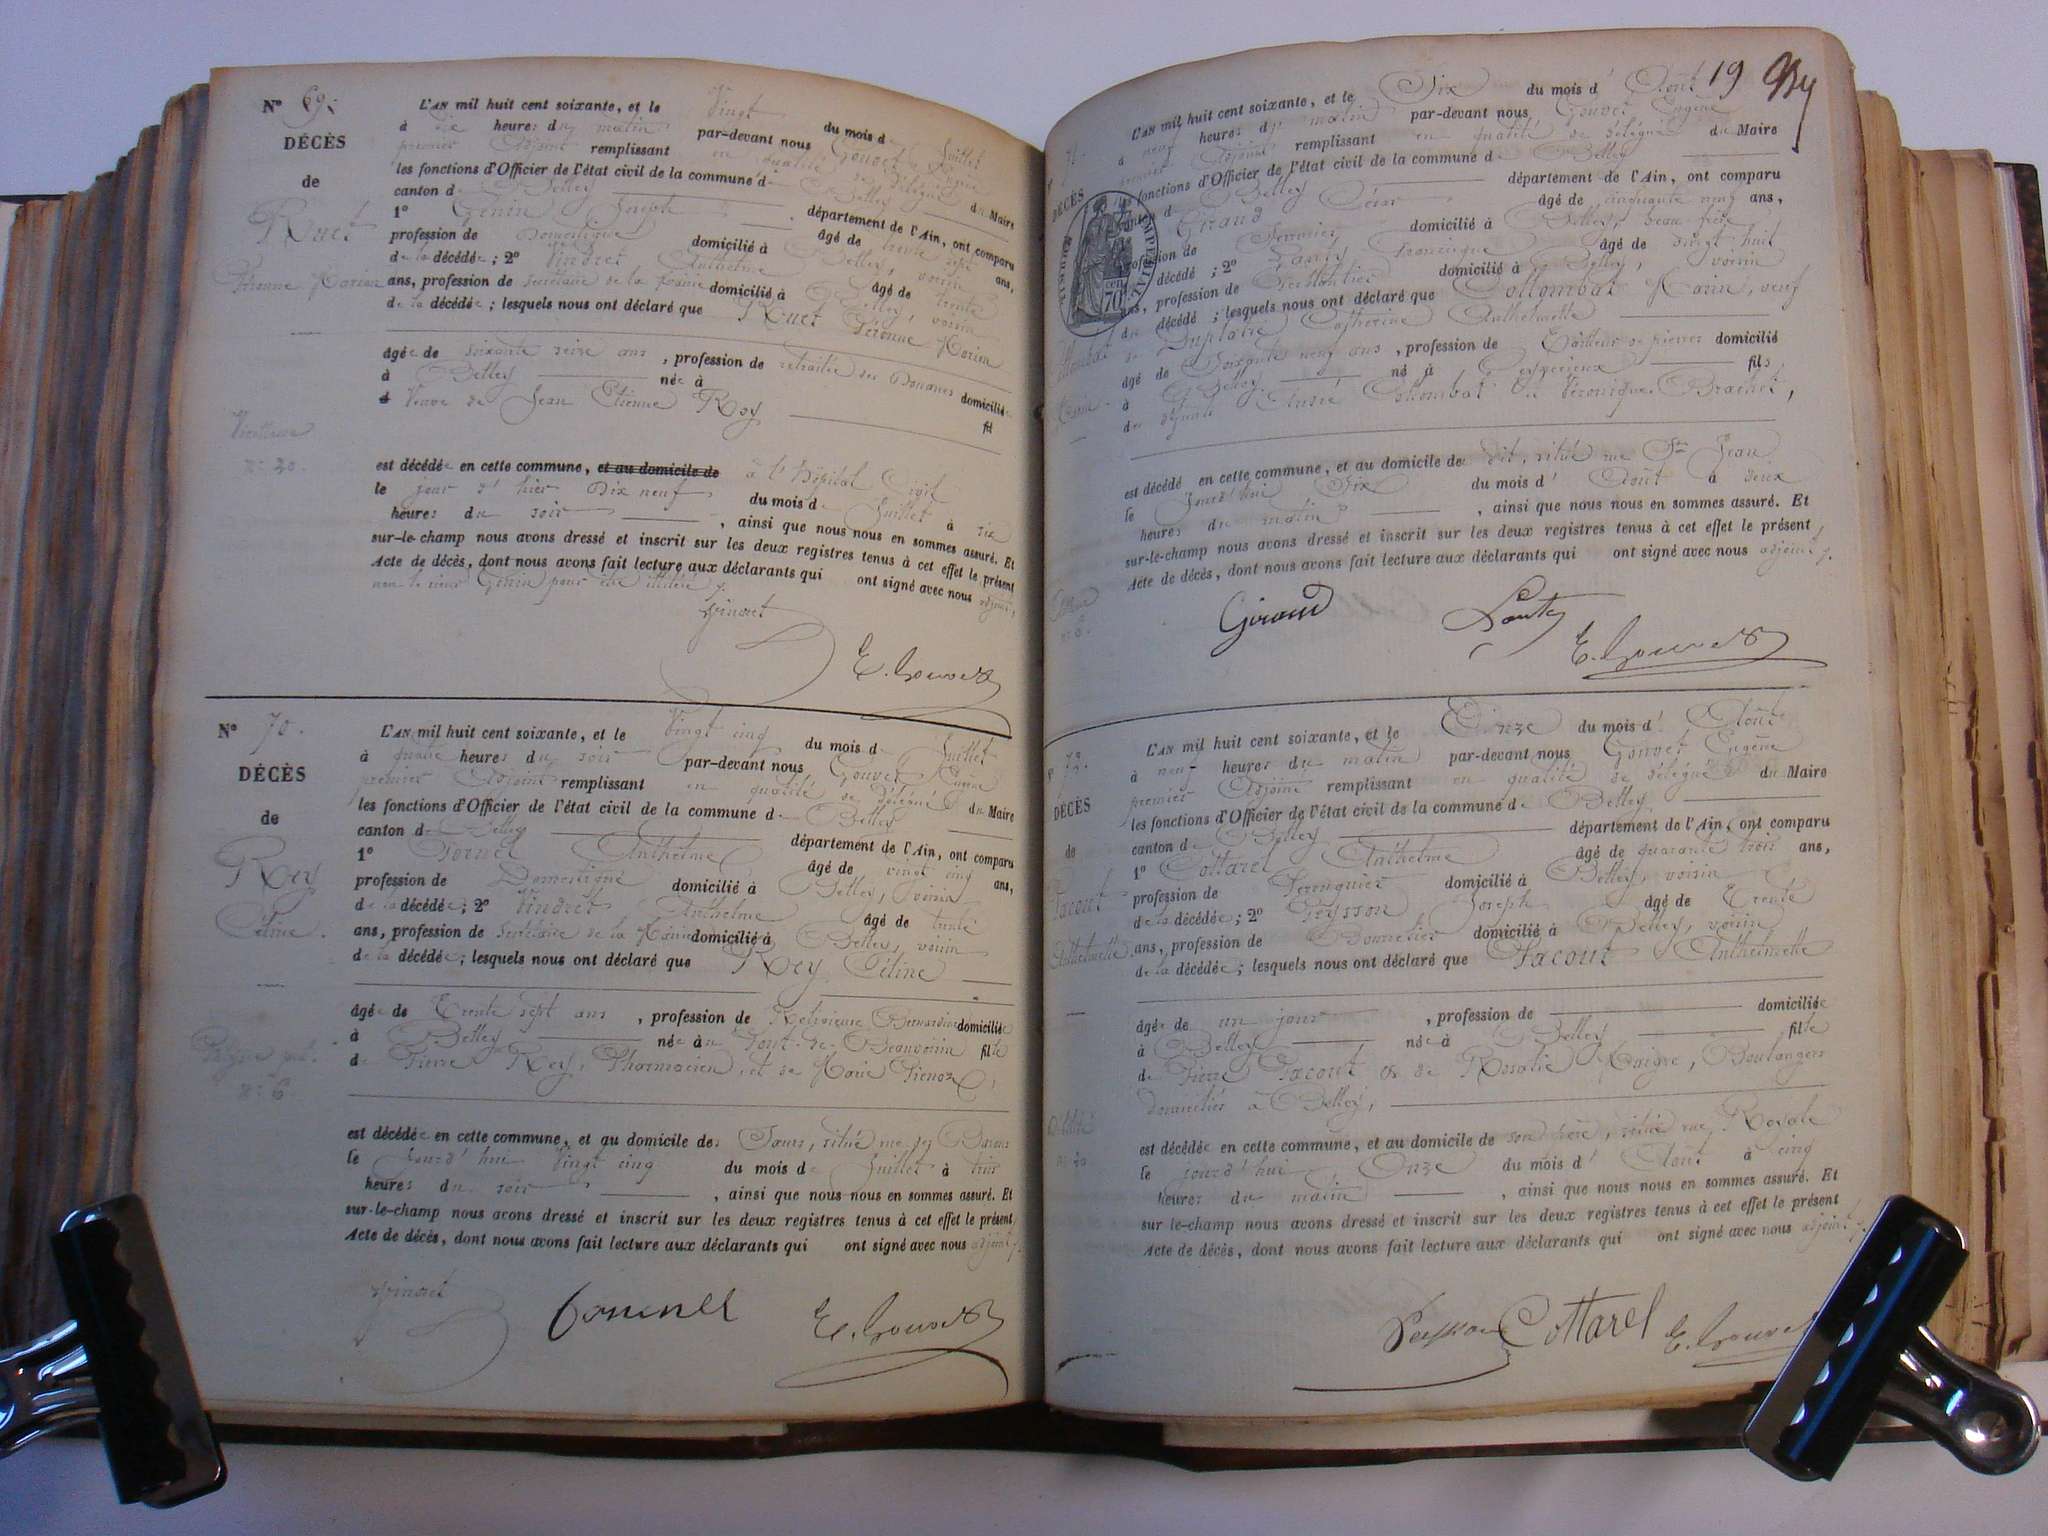 N° 69.
DÉCÈS
de
Ruet
Péronne Marine
L'AN mil huit cent soixante, et le Vingt du mois de Juillet
à dix heures du matin par-devant nous Gouvet Eugène
premier Adjoint remplissant en qualité de délégué du Maire
les fonctions d'Officier de l'état civil de la commune de Belley
canton de Belley département de l'Ain, ont comparu
1° Génin Joseph âgé de trente sept ans,
profession de Domestique domicilié à Belley, voisin
de la décédée ; 2° Vindret Anthelme âgé de trente
ans, profession de Secrétaire de la Mairie domicilié à Belley, voisin
de la décédée ; lesquels nous ont déclaré que Ruet Péronne Marine
âgée de soixante seize ans, profession de retraitée des Douanes domiciliée
à Belley née à
Veuve de Jean Etienne Rey fil
n° 20.
est décédée en cette commune, et au domicile de à l'Hôpital Civil
le jour d'hier Dix neuf du mois de Juillet à six
heures du soir, ainsi que nous nous en sommes assuré. Et
sur-le-champ nous avons dressé et inscrit sur les deux registres tenus à cet effet le présent
Acte de décès, dont nous avons fait lecture aux déclarants qui ont signé avec nous adjoint,
non le sieur Génin pour être illétéré
Vindret
E. Gouvet
N° 70.
DÉCÈS
de
Rey
Céline.
n° 6.
L'AN mil huit cent soixante, et le Vingt cinq du mois de Juillet
à quatre heures du soir par-devant nous Gouvet Eugène
premier Adjoint remplissant en qualité de délégué du Maire
les fonctions d'Officier de l'état civil de la commune de Belley
canton de Belley département de l'Ain, ont comparu
1° Anthelme âgé de vingt cinq ans,
profession de Domestique domicilié à Belley, voisin
de la décédée ; 2° Vindret Anthelme âgé de trente
ans, profession de Secrétaire de la Mairie domicilié à Belley, voisin
de la décédée ; lesquels nous ont déclaré que Rey Céline
âgée de Trente sept ans, profession de Religieuse Bernardine domiciliée
à Belley née au Pont-de-Beauvoisin fille
de Pierre Rey, Pharmacien, et de Marie
est décédée en cette commune, et au domicile des Sœurs, situé rue des Barons
le jourd'hui vingt cinq du mois de Juillet à trois
heures du soir, ainsi que nous nous en sommes assuré. Et
sur-le-champ nous avons dressé et inscrit sur les deux registres tenus à cet effet le présent
Acte de décès, dont nous avons fait lecture aux déclarants qui ont signé avec nous adjoint
Vindret
E. Gouvet
19
71.
DÉCÈS
TIMBRE IMPÉRIAL
70 cen
L'AN mil huit cent soixante, et le Six du mois d'Août
à neuf heures du matin par-devant nous Gouvet Eugène
premier Adjoint remplissant en qualité de délégué du Maire
les fonctions d'Officier de l'état civil de la commune de Belley
canton de Belley département de l'Ain, ont comparu
Giraud César âgé de cinquante neuf ans,
profession de domicilié à Belley, beau frère
décédé ; 2° âgé de vingt huit
ans, profession de Ferblantier domicilié à Belley, voisin
du décédé ; lesquels nous ont déclaré que Collombat Marin, veuf
de Catherine Anthelmette
âgé de Soixante neuf ans, profession de Tailleur de pierres domicilié
à Belley né à Peyrieux fils
de défunts André Collombat et Véronique Brachet,
est décédé en cette commune, et au domicile de dit, situé rue St Jean
le jourd'hui Six du mois d'Août à deux
heures du matin, ainsi que nous nous en sommes assuré. Et
sur-le-champ nous avons dressé et inscrit sur les deux registres tenus à cet effet le présent
Acte de décès, dont nous avons fait lecture aux déclarants qui ont signé avec nous adjoint
Giraud
E. Gouvet
72.
DÉCÈS
de
Pacout
Anthelmette.
L'AN mil huit cent soixante, et le Onze du mois d'Août
à neuf heures du matin par-devant nous Gouvet Eugène
premier Adjoint remplissant en qualité de délégué du Maire
les fonctions d'Officier de l'état civil de la commune de Belley
canton de Belley département de l'Ain, ont comparu
1° Cottarel Anthelme âgé de quarante trois ans,
profession de Perruquier domicilié à Belley, voisin
de la décédée ; 2° Peysson Joseph âgé de Trente
ans, profession de Bourrelier domicilié à Belley, voisin
de la décédée ; lesquels nous ont déclaré que Pacout Anthelmette
âgée de un jour, profession de domiciliée
à Belley née à Belley fille
de Pierre Pacout et de Rosalie Maigre, Boulangers
domiciliés à Belley,
est décédée en cette commune, et au domicile de son père, situé rue Royale
le jourd'hui Onze du mois d'Août à cinq
heures du matin, ainsi que nous nous en sommes assuré. Et
sur le-champ nous avons dressé et inscrit sur les deux registres tenus à cet effet le présent
Acte de décès, dont nous avons fait lecture aux déclarants qui ont signé avec nous adjoint
Peysson Cottarel E. Gouvet